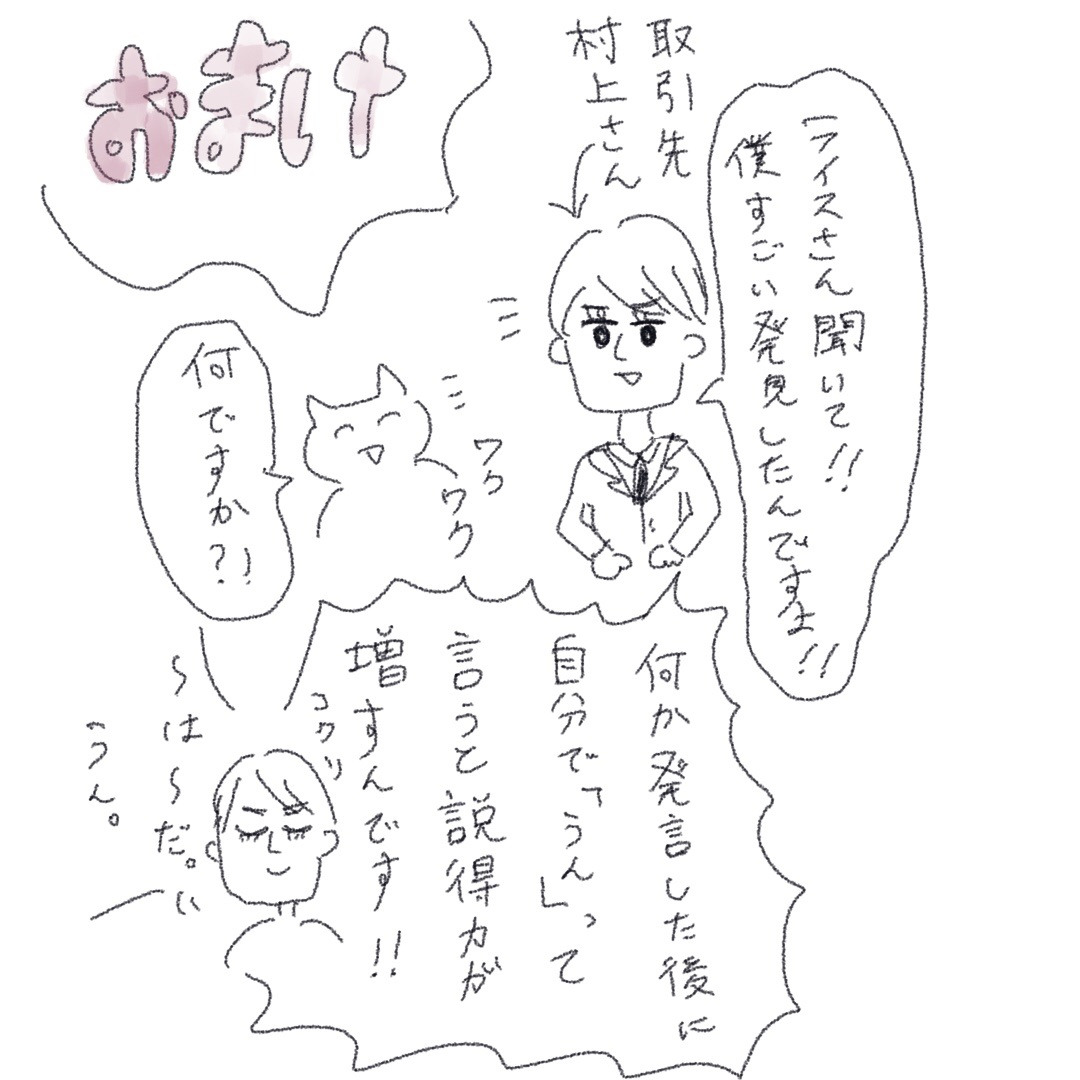 おまけ
取引先
村上さん
ライスさん聞いて!!
僕すごい発見したんですよ!!
何ですか?!
ワク
ワク
何か発言した後に
自分で「うん」って
言うと説得力が
増すんです!!
コクッ
〜は〜だ。
うん。